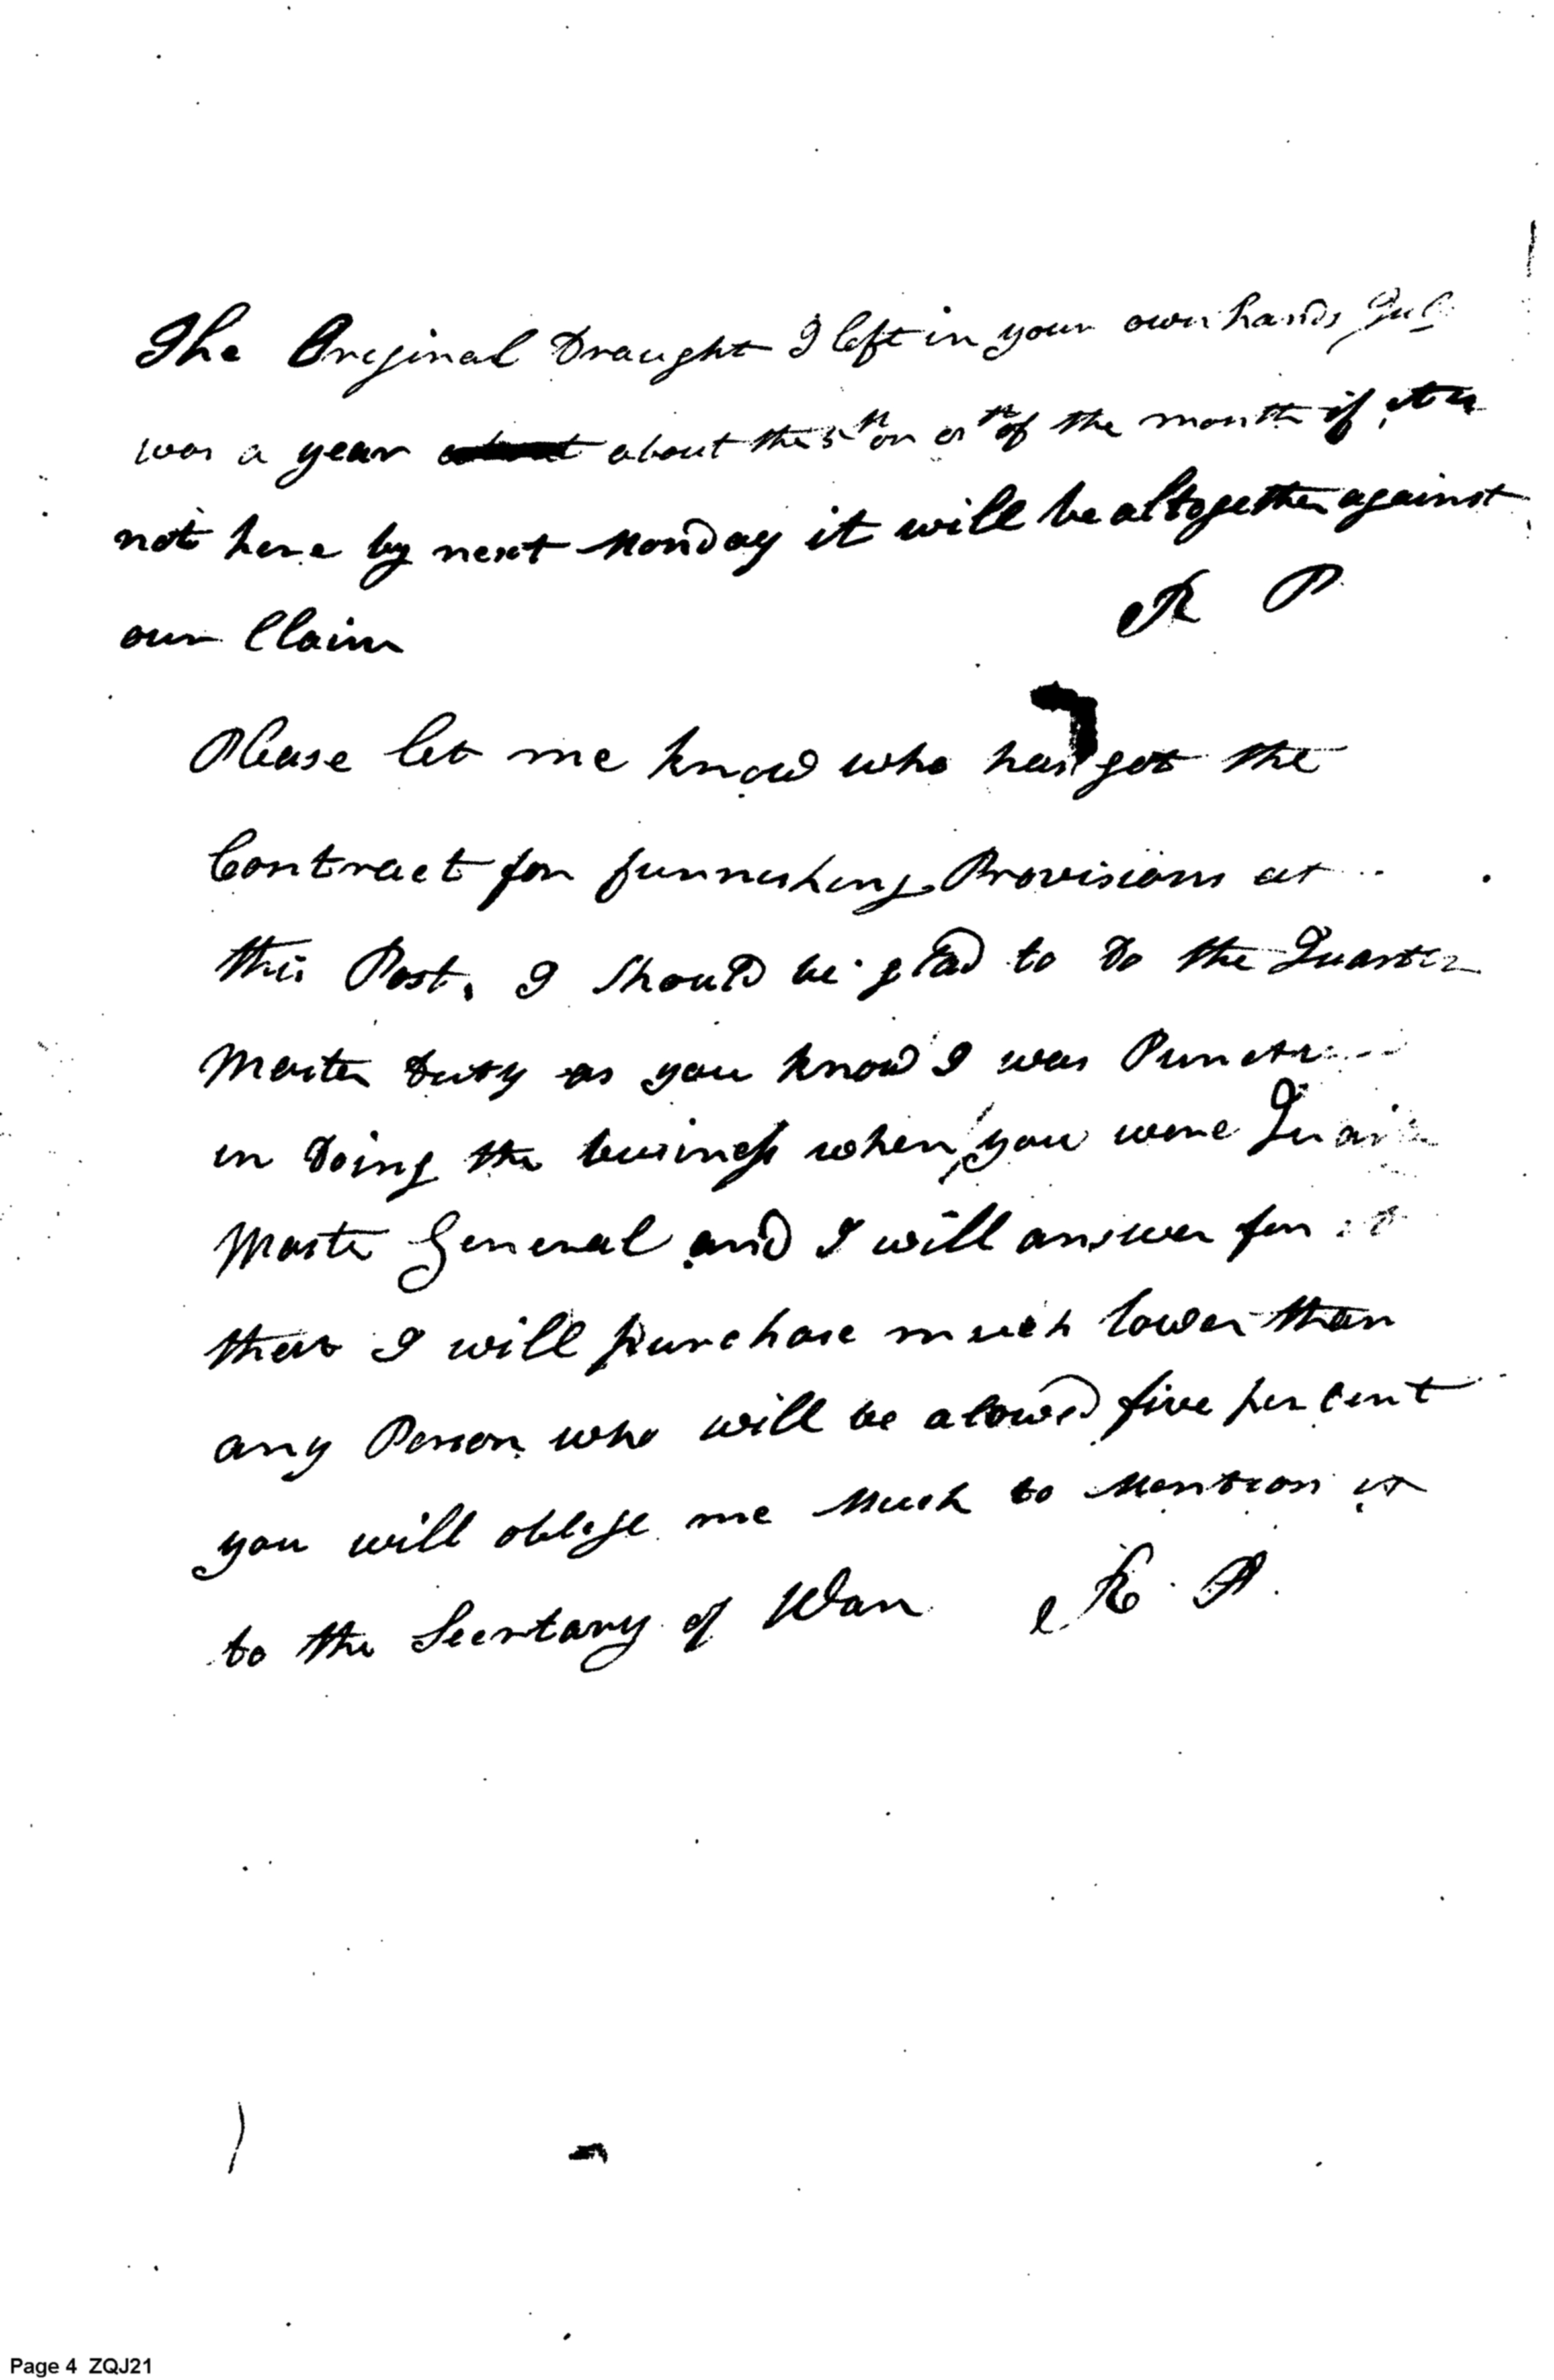 The Original Draught I left in your own hands
was a year about the 5th or of the month if it is
not here by next Monday it will be altogether against
our Claim
R P
Please let me know who has got the
Contract for furnishing Provisions at
this Post, I Should be glad to Do the Quarter
Master Duty as you know I was
in Doing the business when you were
Master General and I will answer for it
that I will purchase much lower than
any Person who will be alowed five per Cent
you will oblige me Much to Mention it
to the Secrtary of War R. P.
Page 4 ZQJ21